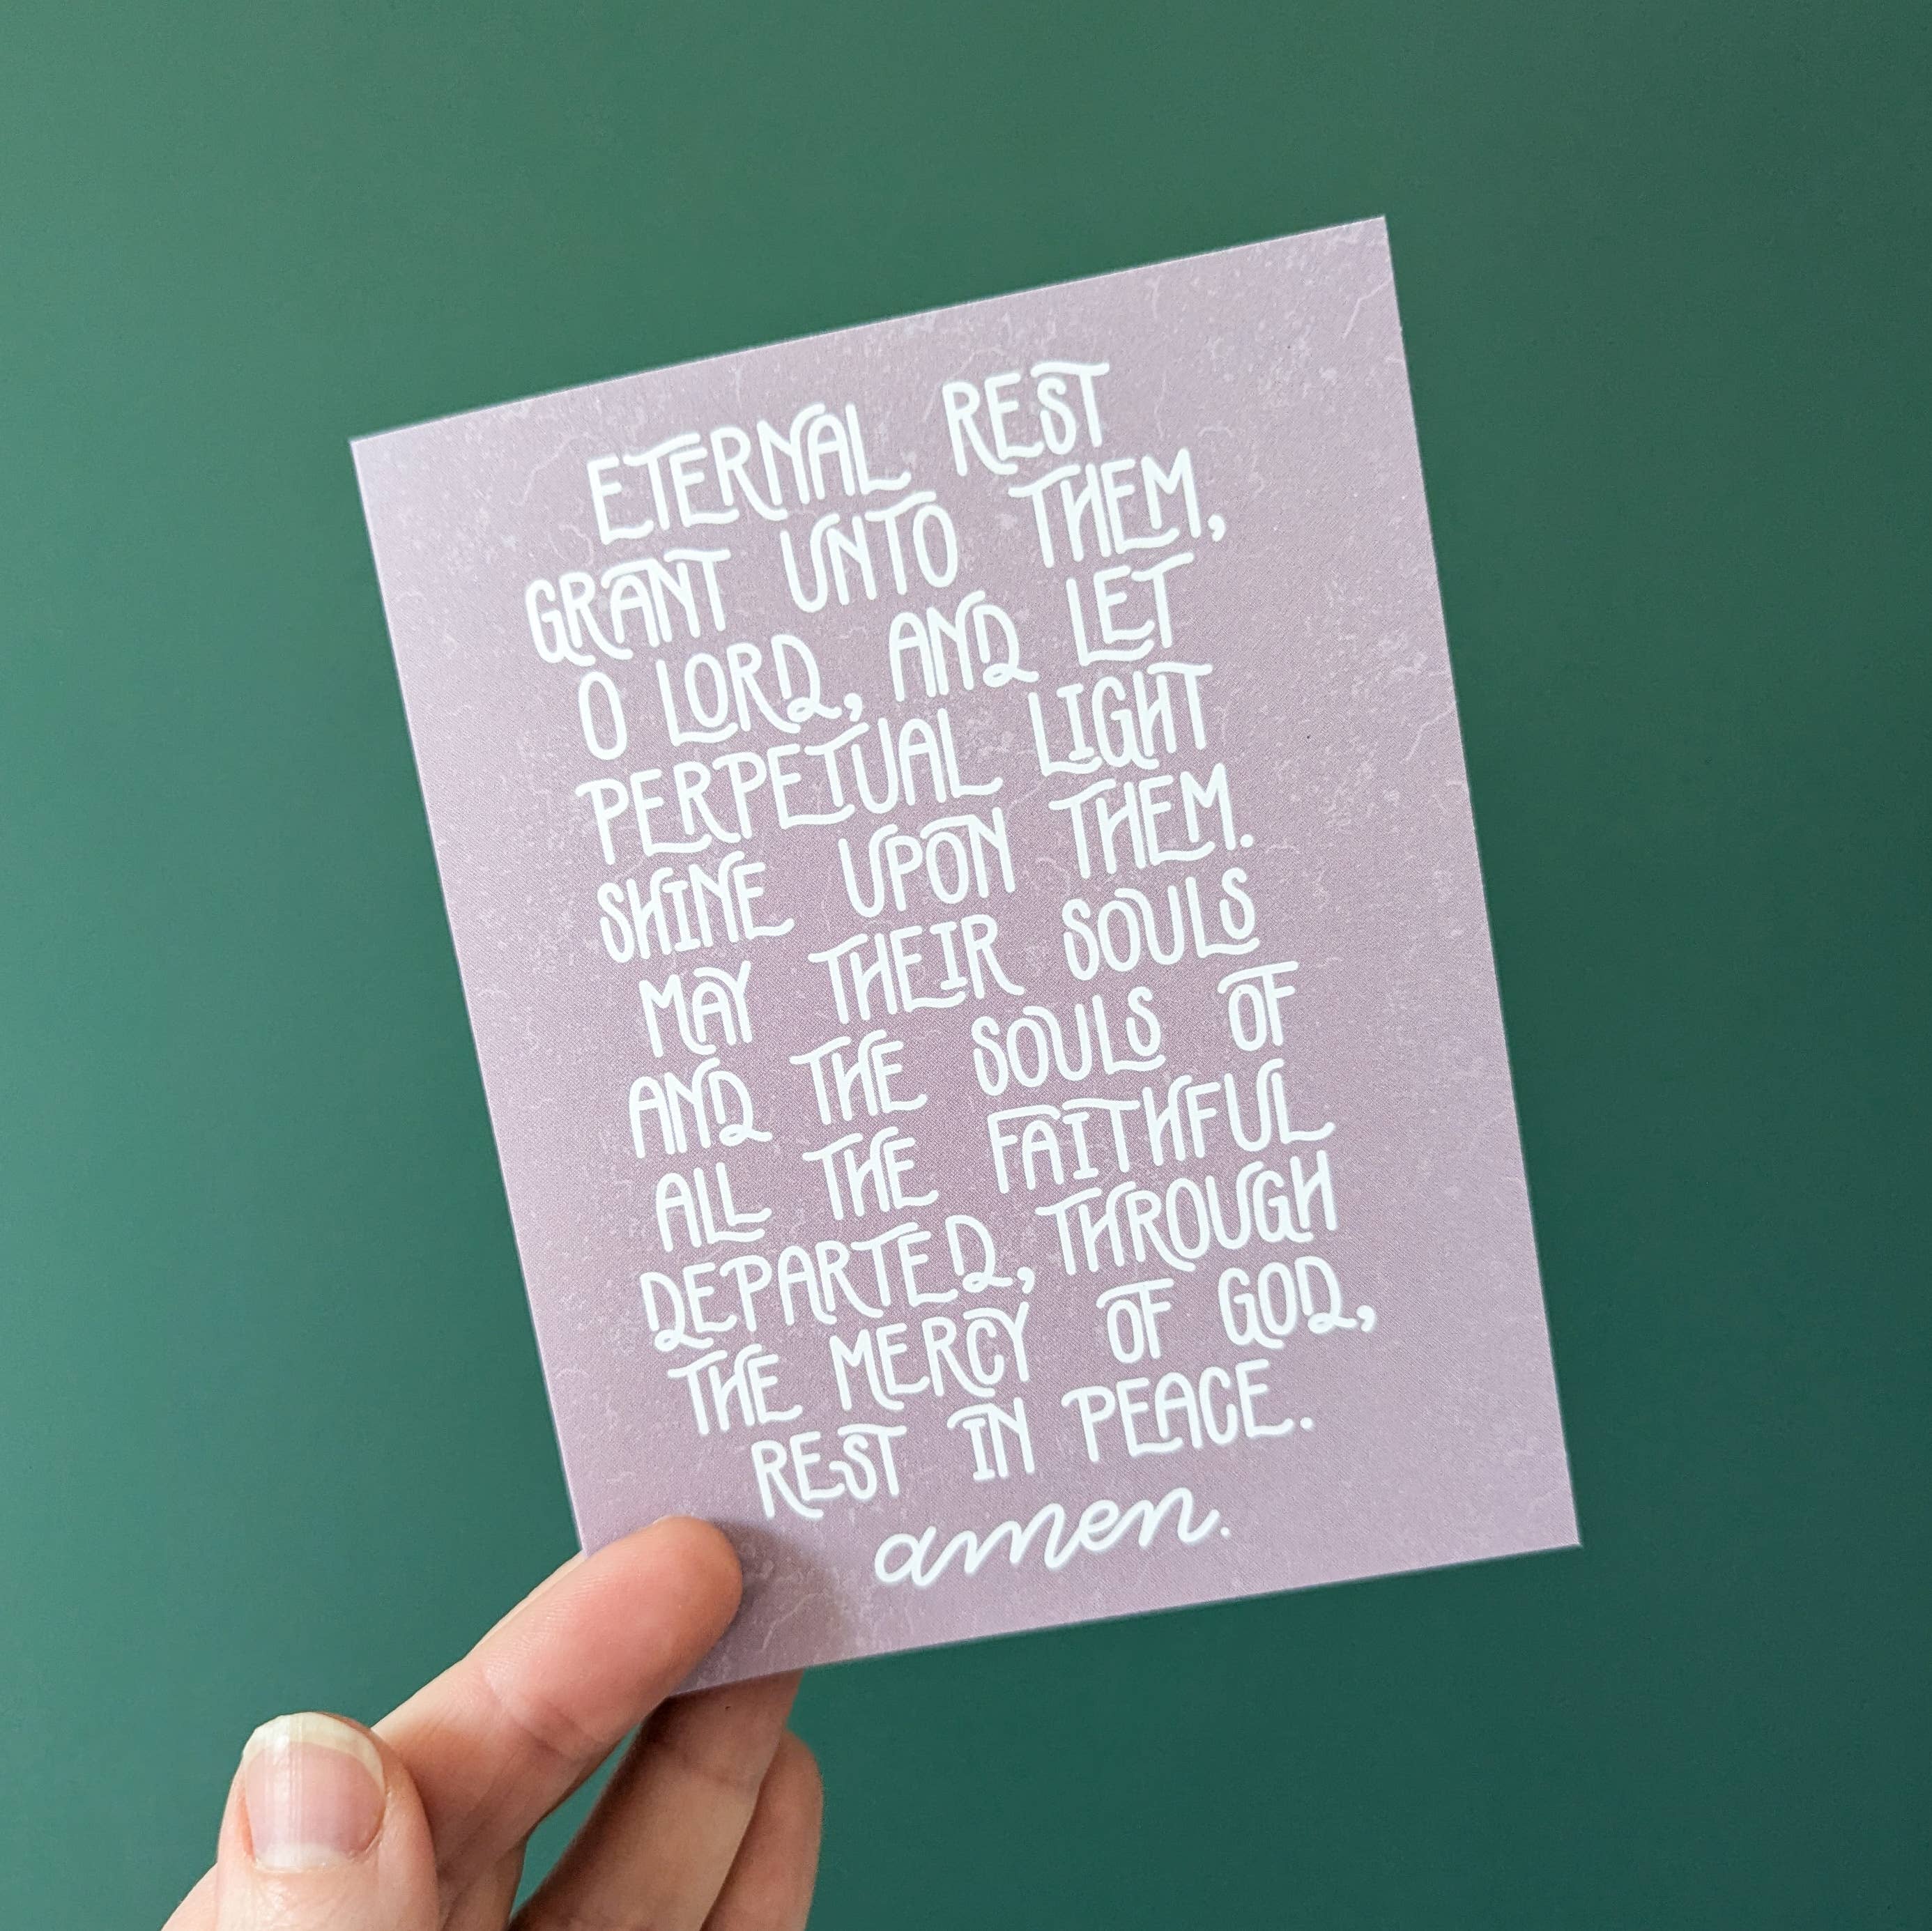 ETERNAL REST
GRANT UNTO THEM,
O LORD, AND LET
PERPETUAL LIGHT
SHINE UPON THEM.
MAY THEIR SOULS
AND THE SOULS OF
ALL THE FAITHFUL
DEPARTED, THROUGH
THE MERCY OF GOD,
REST IN PEACE.
amen.